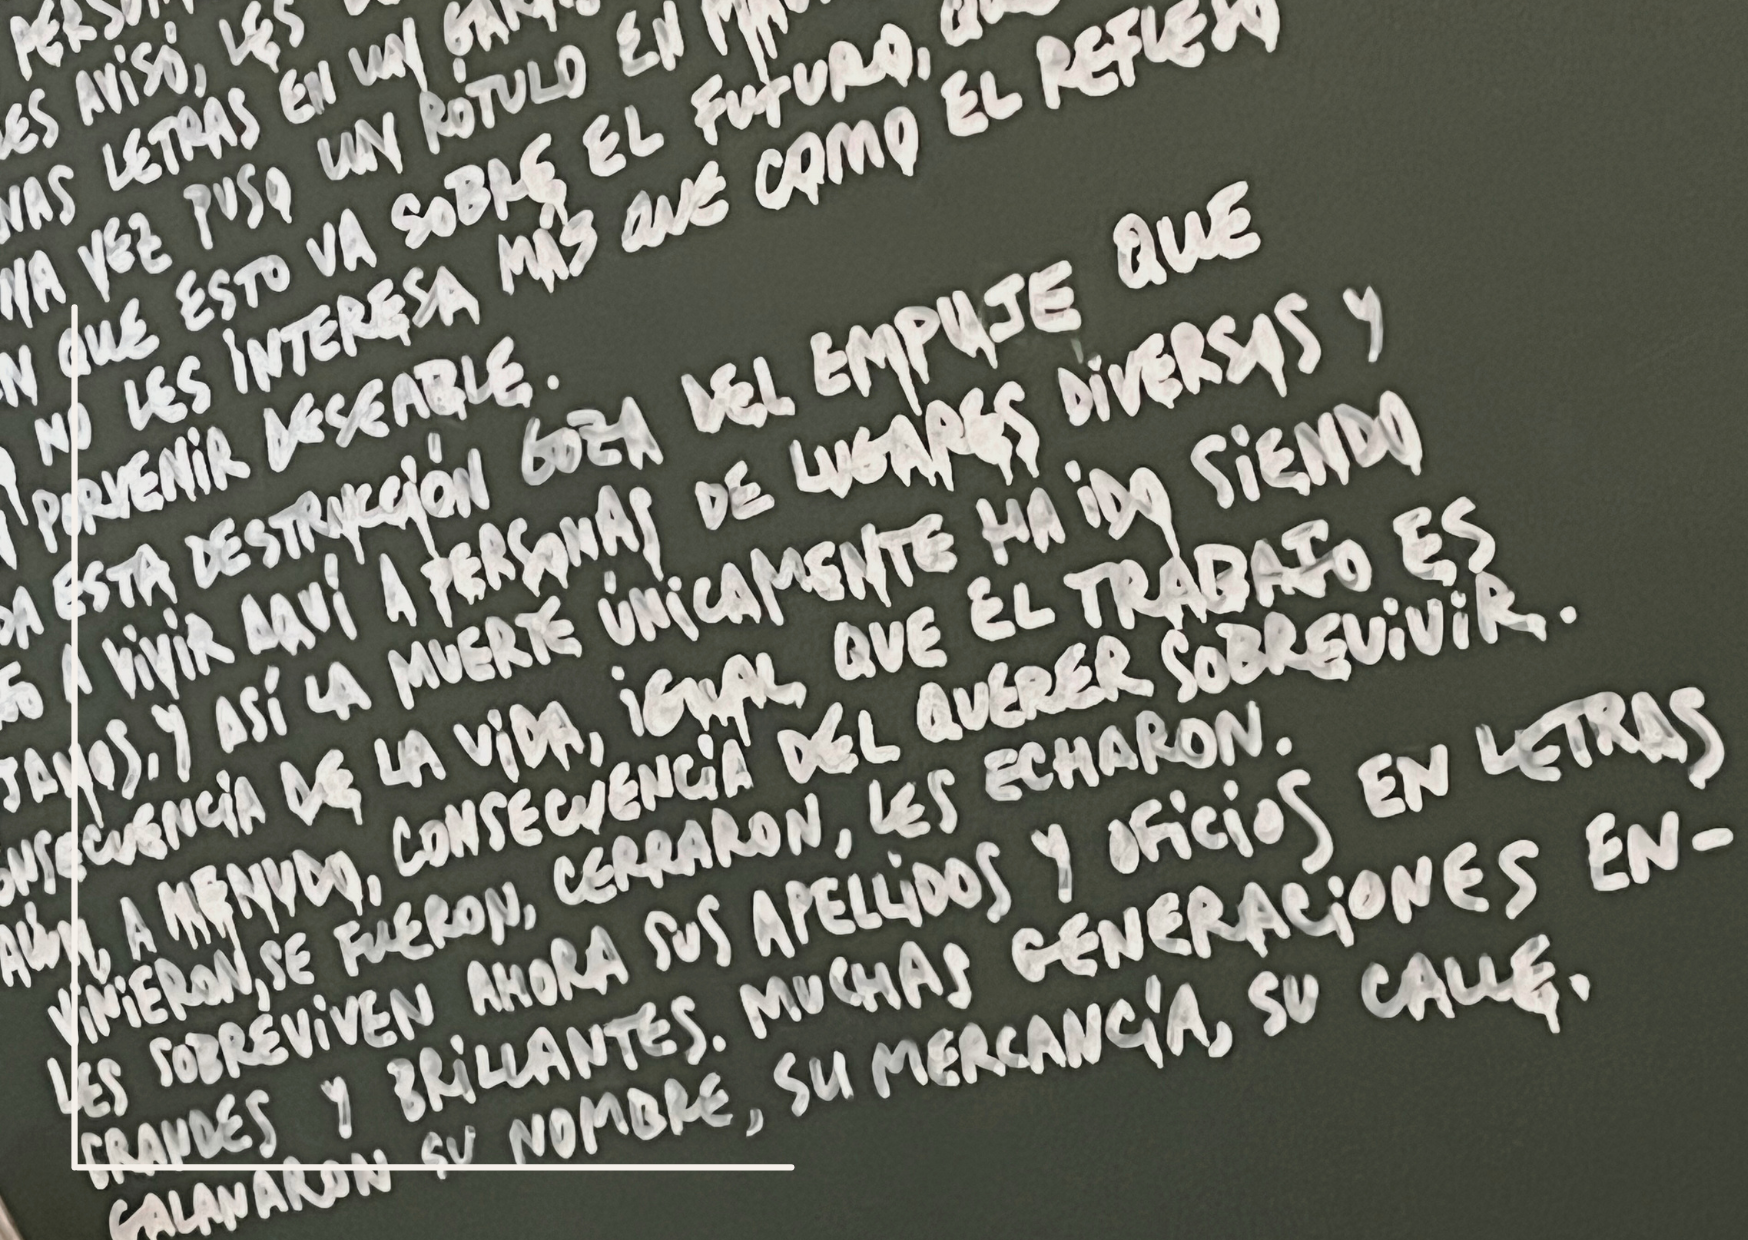 PERSON
LES AVISÓ, LES
UNAS LETRAS EN UN GARAJ
UNA VEZ PUSO UN RÓTULO EN
QUE ESTO VA SOBRE EL FUTURO, QUE
NO LES INTERESA MÁS QUE COMO EL REFLEJO
PORVENIR DESEABLE.
ESTA DESTRUCCIÓN GOZA DEL EMPUJE QUE
A VIVIR AQUÍ A PERSONAS DE LUGARES DIVERSAS Y
Y ASÍ LA MUERTE ÚNICAMENTE HA IDO SIENDO
CONSECUENCIA DE LA VIDA, IGUAL QUE EL TRABAJO ES
A MENUDO, CONSECUENCIA DEL QUERER SOBREVIVIR.
VINIERON, SE FUERON, CERRARON, LES ECHARON.
LES SOBREVIVEN AHORA SUS APELLIDOS Y OFICIOS EN LETRAS
GRANDES Y BRILLANTES. MUCHAS GENERACIONES EN-
GALANARON SU NOMBRE, SU MERCANCÍA, SU CALLE.